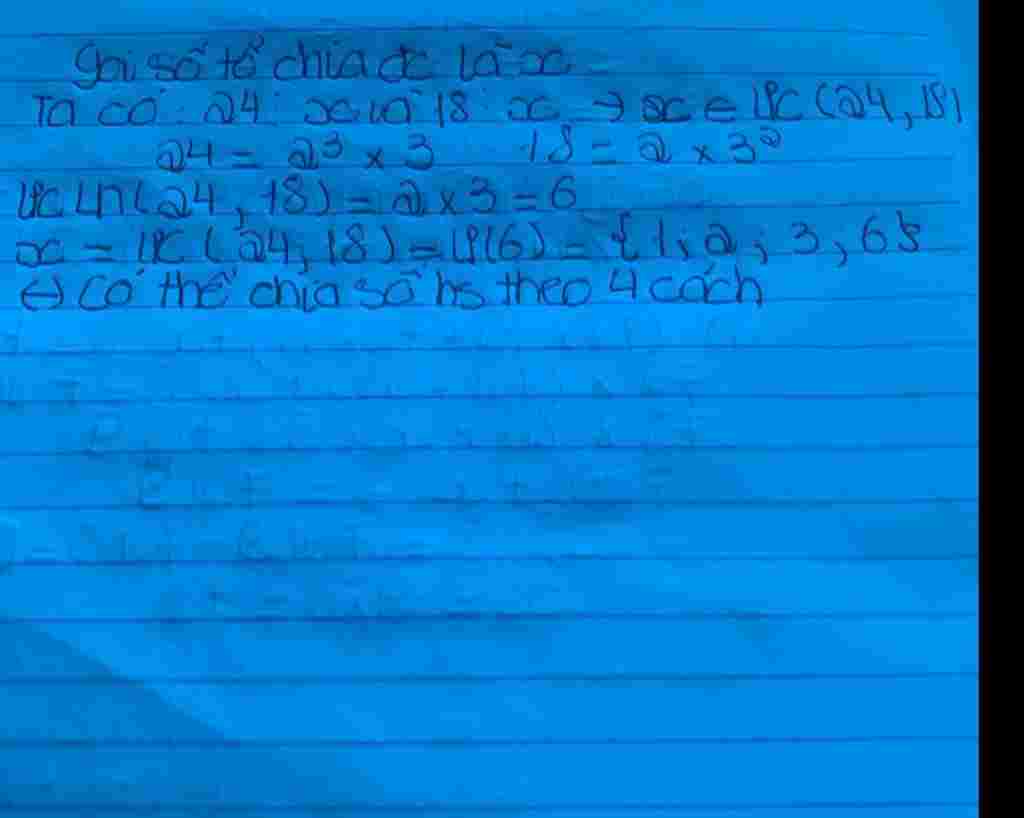 Gọi số tổ chia đc là x
Ta có: 24 ⋮ x và 18 ⋮ x → x ∈ ƯC (24, 18)
24 = 2³ x 3 18 = 2 x 3²
ƯCLN (24, 18) = 2 x 3 = 6
x = ƯC (24, 18) = Ư(6) = {1; 2; 3, 6}
↔ Có thể chia số hs theo 4 cách